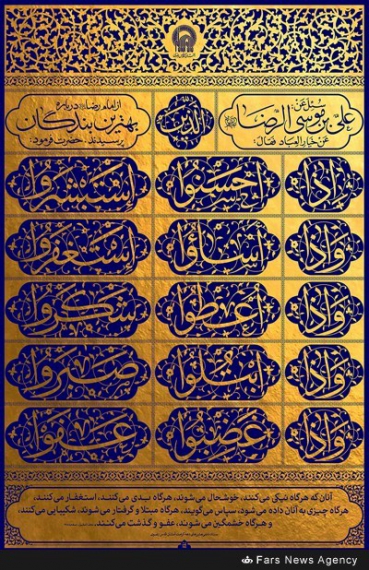 سُئِلَ عَنْ
علی بن موسی الرضا
عَنْ خیار العباد فقال:
الَّذینَ
از امام رضا درباره
بهترین بندگان
پرسیدند، حضرت فرمود:
اِذا اَحْسَنُوا اِسْتَبْشَرُوا
وَاِذا اَساؤُوا اِسْتَغْفَرُوا
وَاِذا اُعْطُوا شَکَرُوا
وَاِذا ابْتُلُوا صَبَرُوا
وَاِذا غَضِبُوا عَفَوْا
آنان که هرگاه نیکی می‌کنند، خوشحال می‌شوند، هرگاه بدی می‌کنند، استغفار می‌کنند،
هرگاه چیزی به آنان داده می‌شود، سپاس می‌گویند، هرگاه مبتلا و گرفتار می‌شوند، شکیبایی می‌کنند،
و هرگاه خشمگین می‌شوند، عفو و گذشت می‌کنند.
Fars News Agency